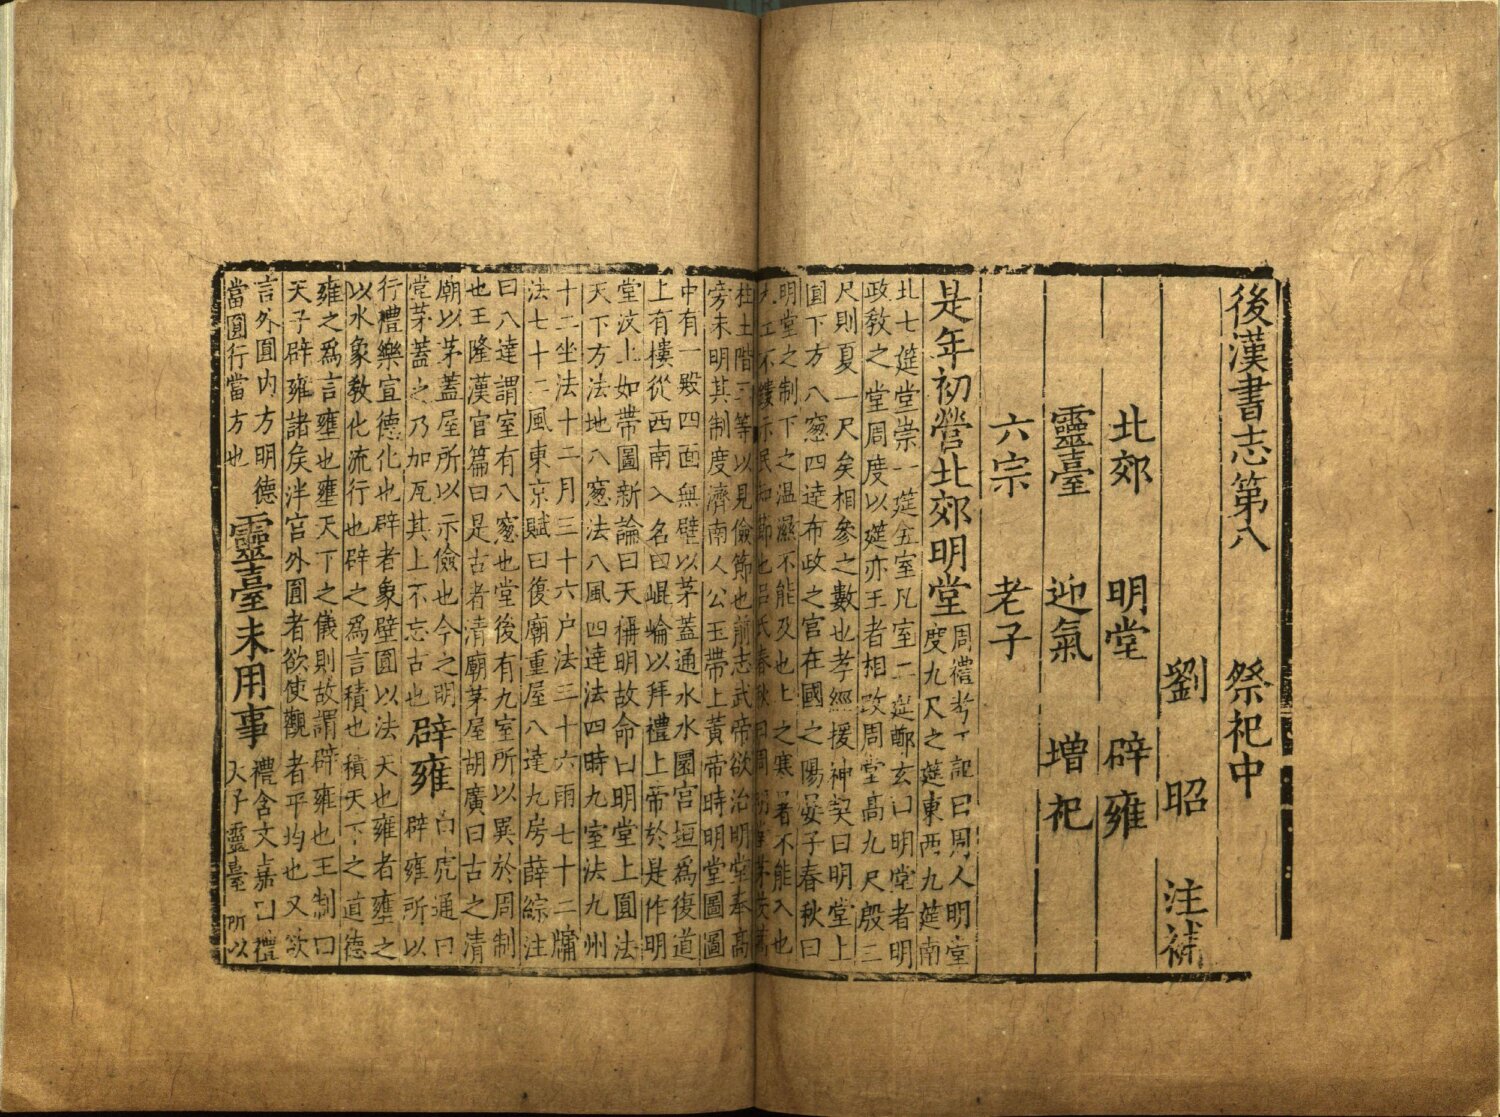 後漢書志第八 祭祀中
劉昭 注補
北郊 明堂 辟雍
靈臺 迎氣 增祀
六宗 老子
是年初營北郊明堂
周禮考工記曰周人明堂
度九尺之筵東西九筵南
北七筵堂崇一筵五室凡室二筵鄭玄曰明堂者明
政教之堂周度以筵亦王者相改周堂高九尺殷三
尺則夏一尺矣相參之數也孝經援神契曰明堂上
圓下方八窻四達布政之官在國之陽晏子春秋曰
明堂之制下之温濕不能及也上之寒暑不能入也
木工不鏤示民知節也呂氏春秋曰周明堂茅茨蒿
柱土階三等以見儉節也前志武帝欲治明堂奉高
旁未明其制度濟南人公玉帶上黃帝時明堂圖圖
中有一殿四面無壁以茅蓋通水水圜宮垣爲復道
上有樓從西南入名曰崐崘以拜禮上帝於是作明
堂汶上如帶圖新論曰天稱明故命曰明堂上圓法
天下方法地八窻法八風四達法四時九室法九州
十二坐法十二月三十六户法三十六雨七十二牖
法七十二風東京賦曰復廟重屋八達九房薛綜注
曰八達謂室有八窻也堂後有九室所以異於周制
也王隆漢官篇曰是古者清廟茅屋胡廣曰古之清
廟以茅蓋屋所以示儉也今之明
堂茅蓋之乃加瓦其上不忘古也
辟雍
白虎通曰
辟雍所以
行禮樂宣德化也辟者象璧圓以法天也雍者壅之
以水象教化流行也辟之爲言積也積天下之道德
雍之爲言壅也壅天下之儀則故謂辟雍也王制曰
天子辟雍諸矦泮宮外圓者欲使觀者平均也又欲
言外圓内方明德
當圓行當方也
靈臺未用事
禮含文嘉曰禮
天子靈臺所以